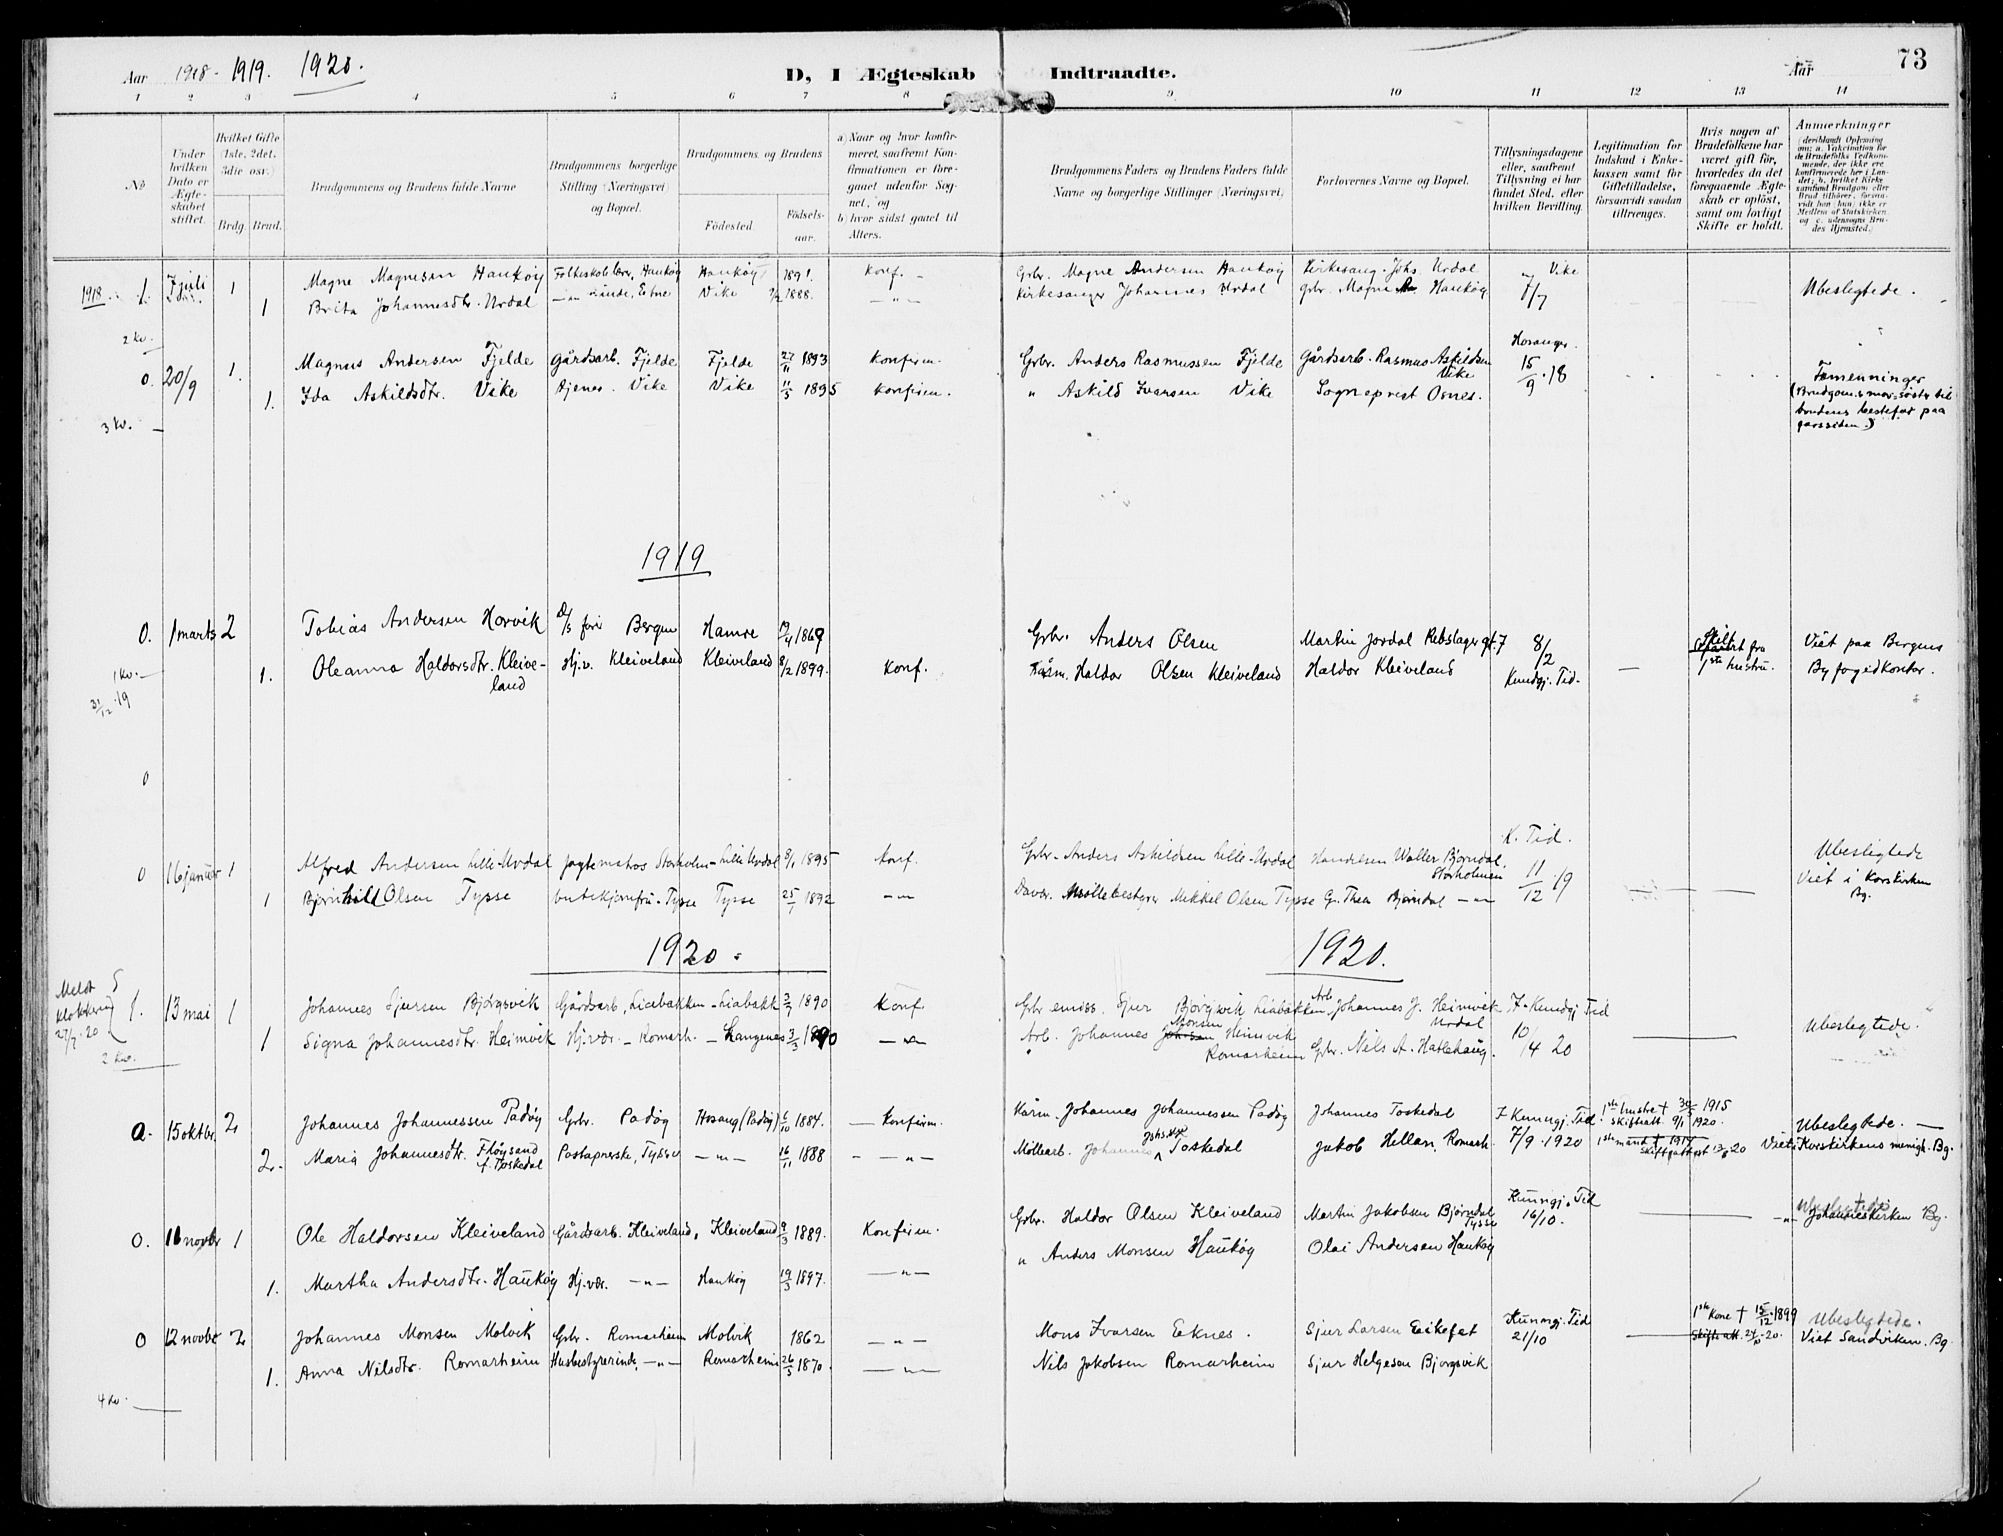 Aar 1918 - 1919. 1920.
D, I Ægteskab Indtraadte.
Aar 73
1 2 3 4 5 6 7 8 9 10 11 12 13 14
No
Under hvilken Dato er Ægteskabet stiftet.
Hvilket Gifte (1ste, 2det, 3die osv.)
Brdg. Brud.
Brudgommens og Brudens fulde Navne
Brudgommens borgerlige Stilling (Næringsvei) og Bopæl.
Brudgommens og Brudens
Födested.
Födselsaar.
a) Naar og hvor konfirmeret, saafremt Konfirmationen er foregaaet udenfor Sognet, og
b) hvor sidst gaaet til Alters.
Brudgommens Faders og Brudens Faders fulde Navne og borgerlige Stillinger (Næringsvei)
Forlovernes Navne og Bopæl.
Tillysningsdagene eller, saafremt Tillysning ei har fundet Sted, efter hvilken Bevilling.
Legitimation for Indskud i Enkekassen samt for Giftetilladelse, forsaavidt saadan tiltrænges.
Hvis nogen af Brudefolkene har været gift før, hvorledes da det foregaaende Ægteskab er oplöst, samt om lovligt Skifte er holdt.
Anmerkninger
1918 1. 7 juli 1 Magne Magnesen Haukøy Folkeskolelærer, Haukøy Haukøy 1891. Konf. Grbr. Magne Andersen Haukøy Kirkesang. Johs. Urdal Vike
1 Brita Johannesdtr. Urdal Etne Vike 1888. — " — Kirkesanger Johannes Urdal gbr. Magne Haukøy 7/7 Ubeslegtede.
2 Kv.
0. 20/9 1. Magnus Andersen Fjelde Gårdsarb. Fjelde Fjelde 27/11 1893 Konfirm. Grbr. Anders Rasmussen Fjelde Gårdsarb. Rasmus Askildsen Vike Hosanger 15/9 . 18
1. Ida Askildsdtr. Vike Tjenes. Vike Vike 11/5 1895 Konfirm. " Askild Ivarsen Vike Sogneprest Osnes. Tremenninger
(Brudgom.s mor søster til
brudens bestefar paa
farssiden.)
3 Kv. —
1919
0. 1 marts 2 Tobias Andersen Horvik Bergen Hamre 1869 Grbr. Anders Olsen Martin Jordal Rebslagergt. 7 8/2 Skilt fra 1ste hustru. Viet paa Bergens
1. Oleanna Haldorsdtr. Kleiveland Hj.v. Kleiveland Kleiveland 8/2 1899. Konf. Haldor Olsen Kleiveland Haldor Kleiveland Kundgj. Tid. — Byfogidkontor.
1 Kv. —
31/12 . 19
0
0 16 januar 1 Alfred Andersen Lille-Urdal Storholm - Lille Urdal 8/1 1895 Konf. Grbr. Anders Askildsen Lille-Urdal Handelsm Walter Bjørndal. Storholmen K. Tid. 11/12 . 19 Ubeslegtede
1 Bjørnhild Olsen Tysse Tysse Tysse 25/7 1892 — " — Møllebestyrer Mikkel Olsen Tysse Fr. Thea Bjørndal — " — Viet i Korskirken Bg.
1920. 1920.
Meldt
27/7 . 20
1. 13 mai 1 Johannes Sjursen Bjørgsvik Gårdsarb. Liabakken - Liabakk 1890 Konf Grbr emiss. Sjur Bjørgsvik Liabakken Arb. Johannes J. Heimvik Urdal F. Kundgj Tid
1 Signa Johannesdtr. Heimvik Hj.vær. - Romarh. - Langenes 3/3 1890 — " — Arb. Johannes Monsen Heimvik Romarheim Grbr. Nils A. Hatlehaug. 10/4 20 Ubeslegtede.
2 Kv. —
0. 15 oktbr. 2 Johannes Johannessen Padøy Grbr. Padøy Hosang (Padøy) 6/10 1884. — Konfirm. Kårm. Johannes Johannessen Padøy Johannes Toskedal F. Kunngj. Tid 1ste hustru † 1915 skifteatt. 9/1 1920. Ubeslegtede. —
2. Maria Johannesdtr. Fløysand f. Toskedal Postaapnerske, Tysse — " — 16/11 1888 — " — Møllearb. Johannes Johs.sen Toskedal Jakob Hellan, Romarh. 7/9 . 1920 1ste mand † 1917 Viet i Korskirkens menigh. Bg.
0. 16 novbr 1 Ole Haldorsen Kleiveland Gårdsarb. Kleiveland, Kleiveland 9/3 1889. Konfirm. Grbr. Haldor Olsen Kleiveland Martin Jakobsen Bjørndal Tysse Kunngj. Tid 16/10. Ubeslegtede — " — Johanneskirken Bg.
1. Martha Andersdtr. Haukøy Hj.vær. — " — Haukøy 19/3 1897. — " — " Anders Monsen Haukøy Olai Andersen Haukøy
0 12 novbr 2 Johannes Monsen Molvik Grbr. Romarheim Molvik 1862 — " — Mons Ivarsen Eknes. Sjur Larsen Eikefet Kunngj. Tid 21/10 1ste kone † 15/12 1899 Ubeslegtede. Viet Sandviken. Bg.
1. Anna Nilsdtr. Romarheim Husbestyrerinde, — " — Romarheim 26/3 1870. — " — Nils Jakobsen Romarheim Sjur Helgesen Bjørgsvik
4 Kv. —